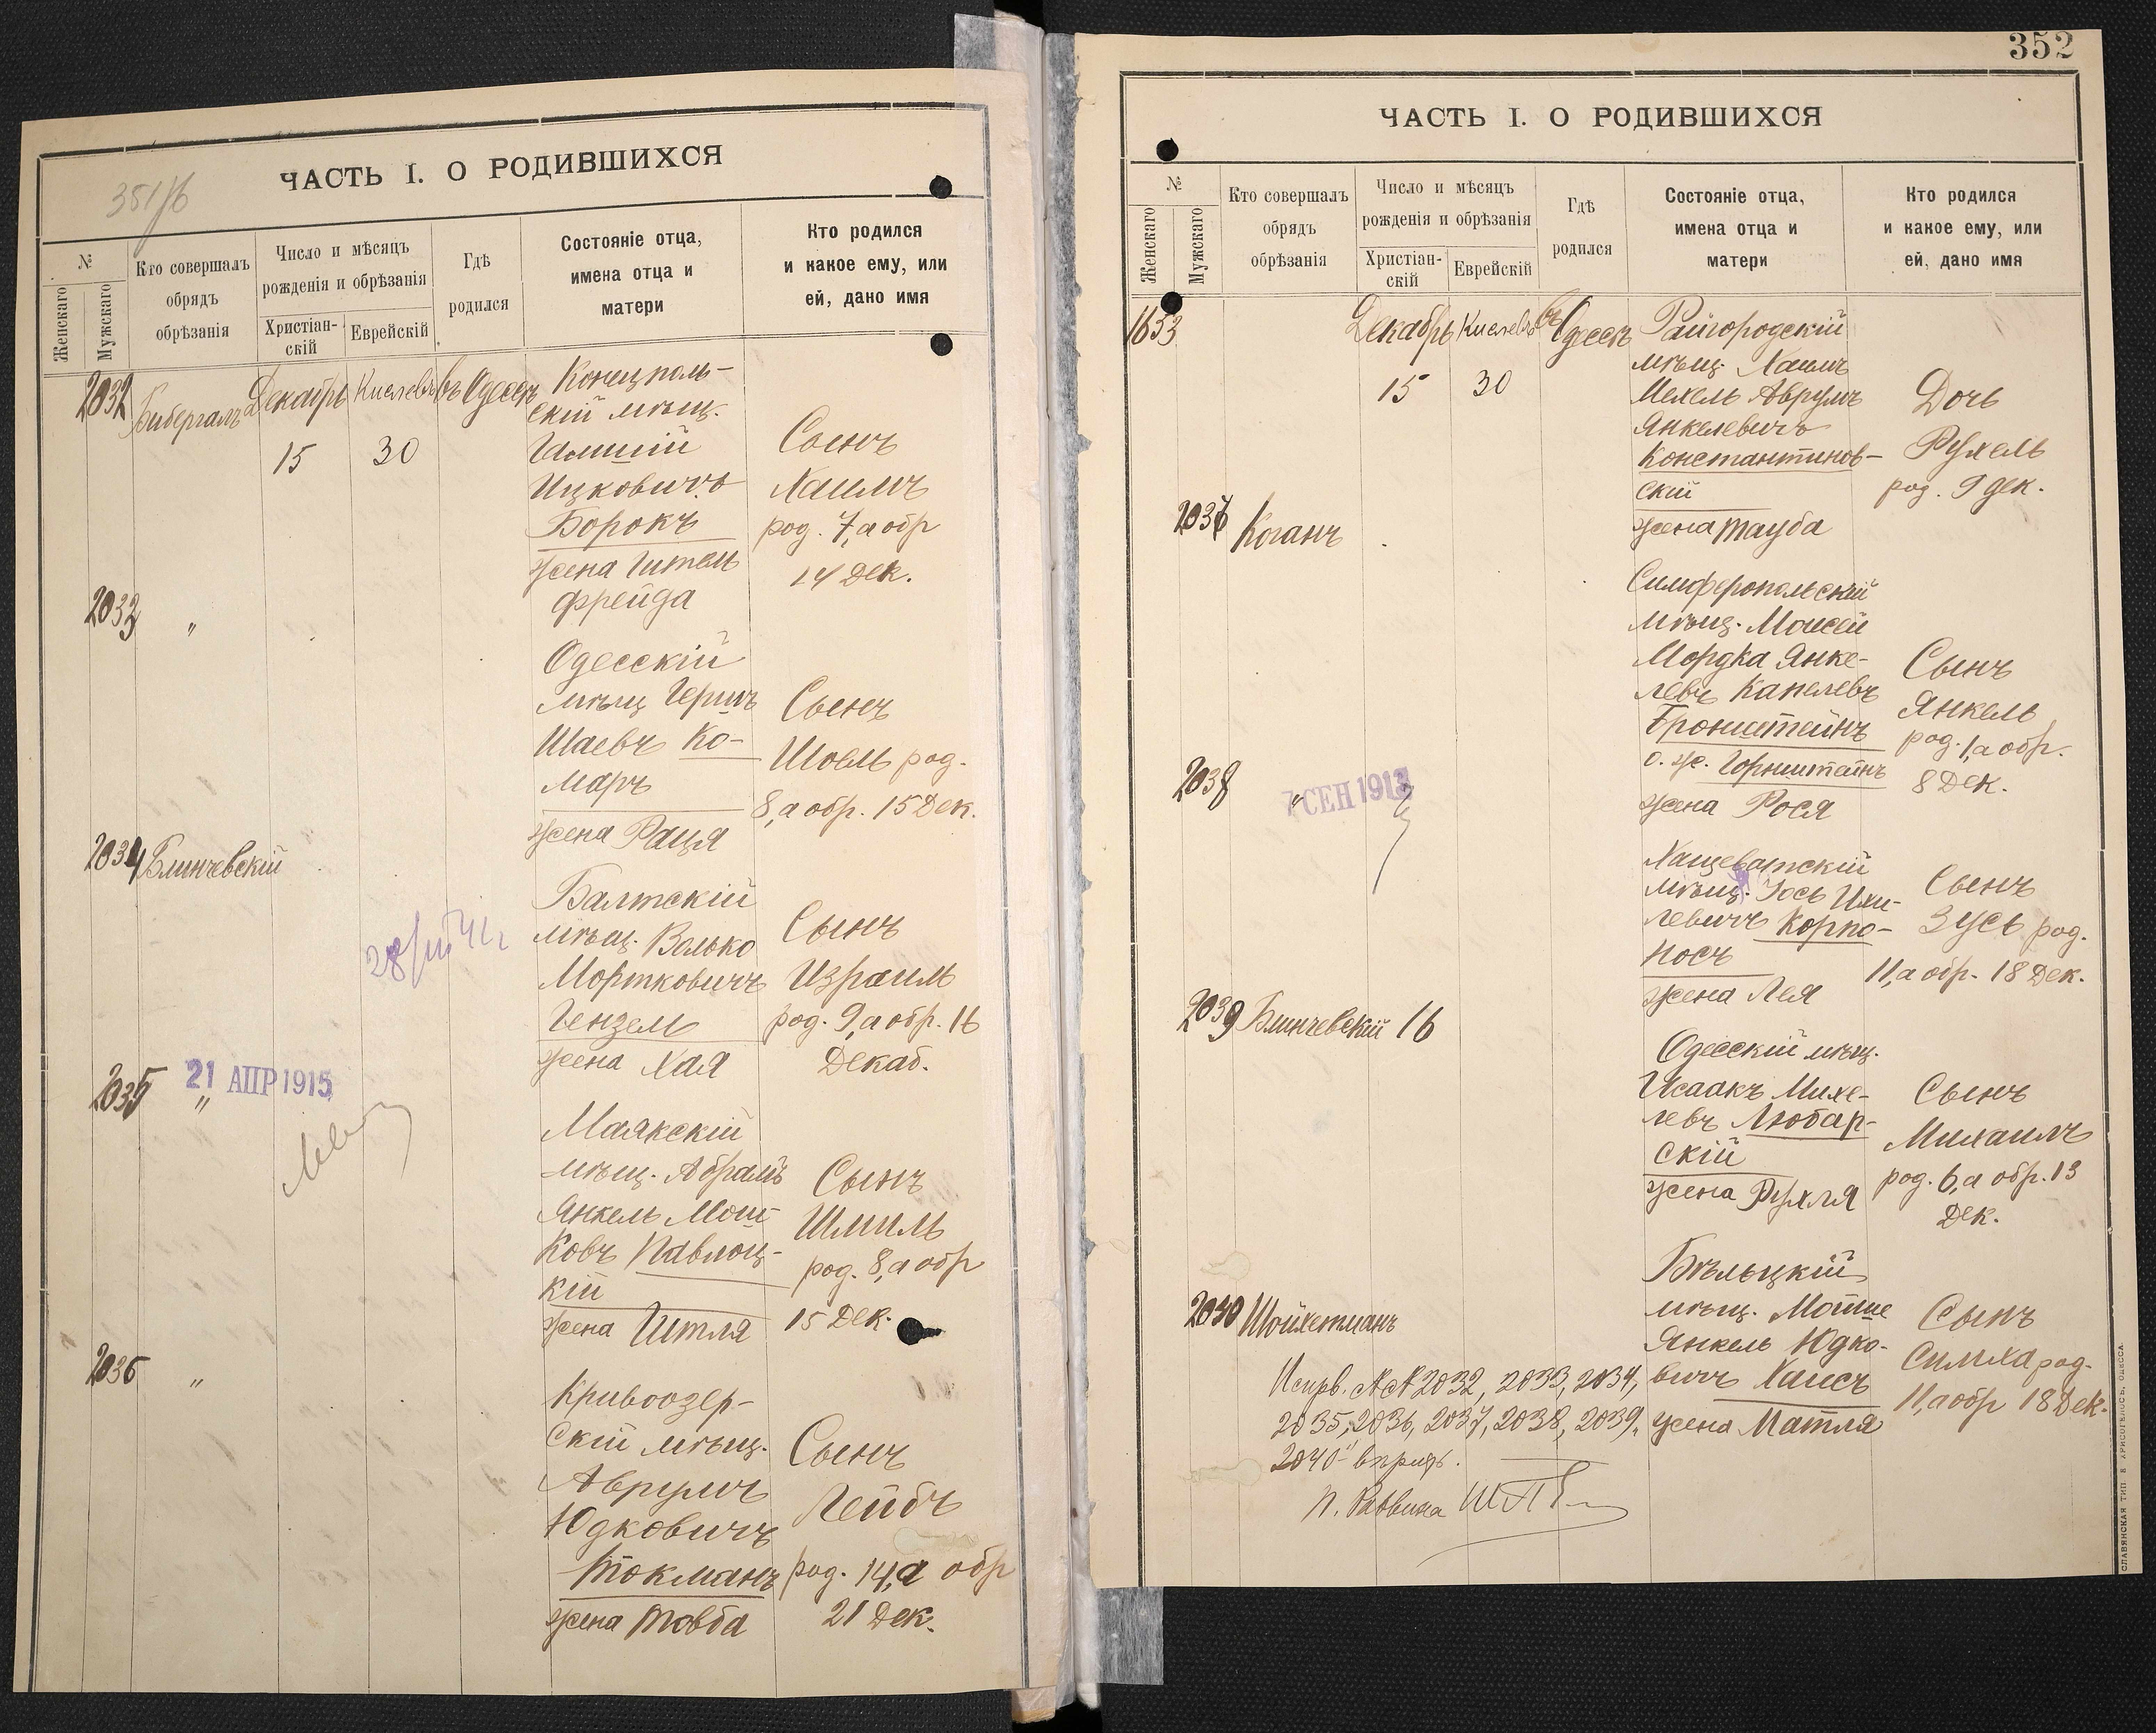 351/б
ЧАСТЬ I. О РОДИВШИХСЯ
№
Женскаго
Мужскаго
Кто совершалъ
обрядъ
обрѣзанія
Число и мѣсяцъ
рожденія и обрѣзанія
Христіан-
скій
Еврейскій
Гдѣ
родился
Состояніе отца,
имена отца и
матери
Кто родился
и какое ему, или
ей, дано имя
2032
Бибергалъ
Декабрь
15
Кислевъ
30
въ Одессѣ
Конецполь-
скій мѣщ.
Ицковичъ
Борокъ
жена Гитель
Фрейда
Сынъ
Хаимъ
род. 7, а обр
14 Дек.
2033
"
Одесскій
мѣщ Гершъ
Шаевъ Ко-
маръ
жена Рация
Сынъ
Шоель род.
8, а обр. 15 Дек.
2034
Блинчевскій
Балтскій
мѣщ. Волько
Мортковичъ
Гензель
жена Хая
Сынъ
Израиль
род. 9, а обр. 16
Декаб.
2035
21 АПР 1915
"
Маякскій
мѣщ. Абрамъ
Янкель Мош-
ковъ Павлоц-
кій
жена Итля
Сынъ
Шмиль
род. 8, а обр
15 Дек.
2036
"
Кривоозер-
скій мѣщ.
Аврумъ
Юдковичъ
Токманъ
жена Товба
Сынъ
Лейбъ
род. 14, а обр
21 Дек.
352
ЧАСТЬ I. О РОДИВШИХСЯ
№
Женскаго
Мужскаго
Кто совершалъ
обрядъ
обрѣзанія
Число и мѣсяцъ
рожденія и обрѣзанія
Христіан-
скій
Еврейскій
Гдѣ
родился
Состояніе отца,
имена отца и
матери
Кто родился
и какое ему, или
ей, дано имя
1653
Декабрь
15
Кислевъ
30
въ Одессѣ
Райгородскій
мѣщ. Хаимъ
Мехель Аврумъ
Янкелевичъ
Константинов-
скій
жена Тауба
Дочь
Рухель
род. 9 дек.
2037
Коганъ
Симферопольскій
мѣщ. Моисей
Мордка Янке-
левъ Капелевъ
Бронштейнъ
о. же. Горнштейнъ
жена Рося
Сынъ
Янкель
род. 1, а обр.
8 Дек.
2038
"
7 СЕН 1913
Хащеватскій
мѣщ. Іось Ихи-
левичъ Корпо-
носъ
жена Лея
Сынъ
Зусь род.
11, а обр. 18 Дек.
2039
Блинчевскій
16
Одесскій мѣщ.
Исаакъ Михе-
левъ Любар-
скій
жена Рухля
Сынъ
Михаилъ
род. 6, а обр. 13
Дек.
2040
Шойхетманъ
Бѣльцкій
мѣщ. Мотше
Янкель Юдко-
вичъ Хаисъ
жена Матля
Сынъ
Симха род.
11, а обр 18 Дек.
Испрв. №№ 2032, 2033, 2034,
2035, 2036, 2037, 2038, 2039,
2040
п. Раввина
СЛАВЯНСКАЯ ТИП Е ХРИСОГЕЛОСЪ, ОДЕССА.